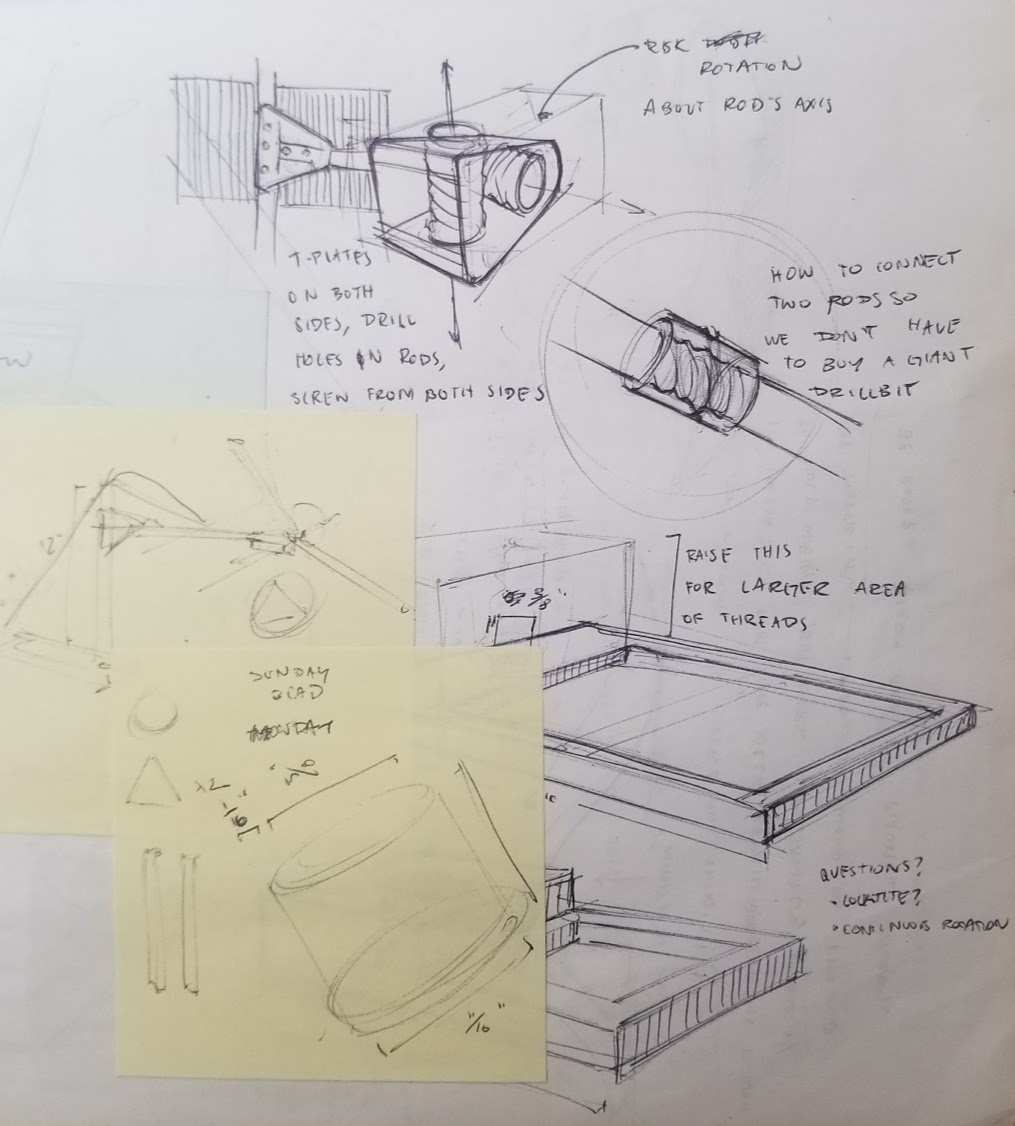 ROTATION
ABOUT ROD'S AXIS
T-PLATES
ON BOTH
SIDES, DRILL
HOLES IN RODS,
SCREW FROM BOTH SIDES
HOW TO CONNECT
TWO RODS SO
WE DON'T HAVE
TO BUY A GIANT
DRILLBIT
RAISE THIS
FOR LARGER AREA
OF THREADS
3/8"
1"
12"
SUNDAY
MONDAY
x2
5/8"
"/16"
QUESTIONS?
• LOCKTITE?
• CONTINUOUS ROTATION